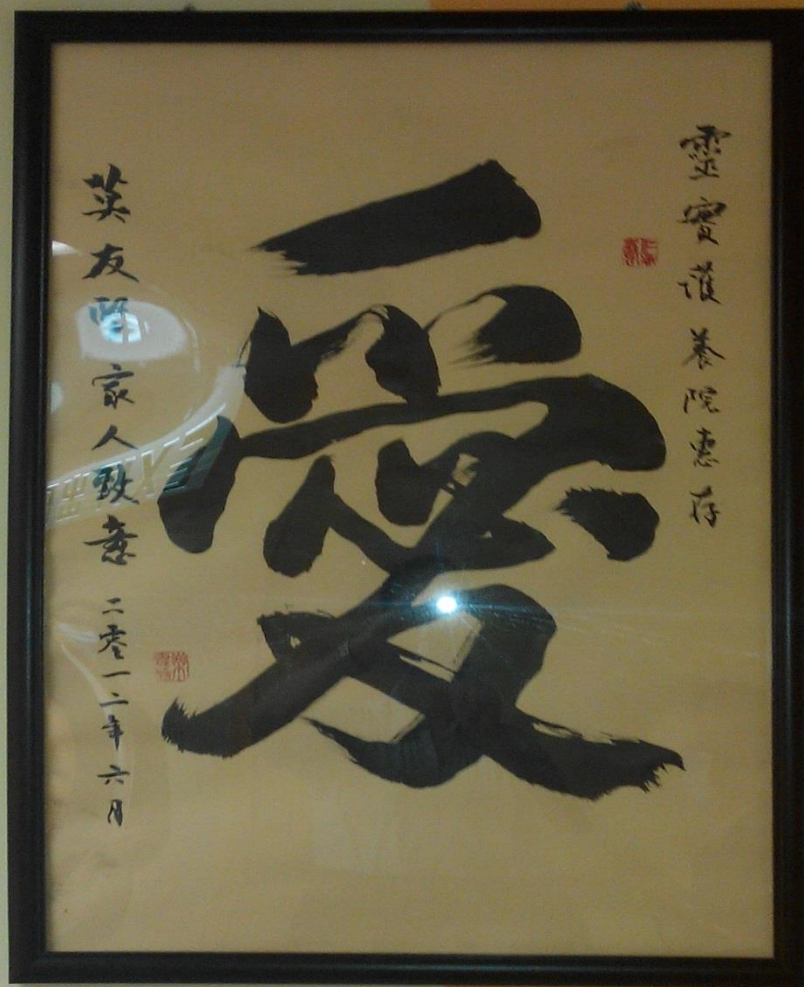 靈實護養院惠存
愛
英友 家人致意
二零一二年六月